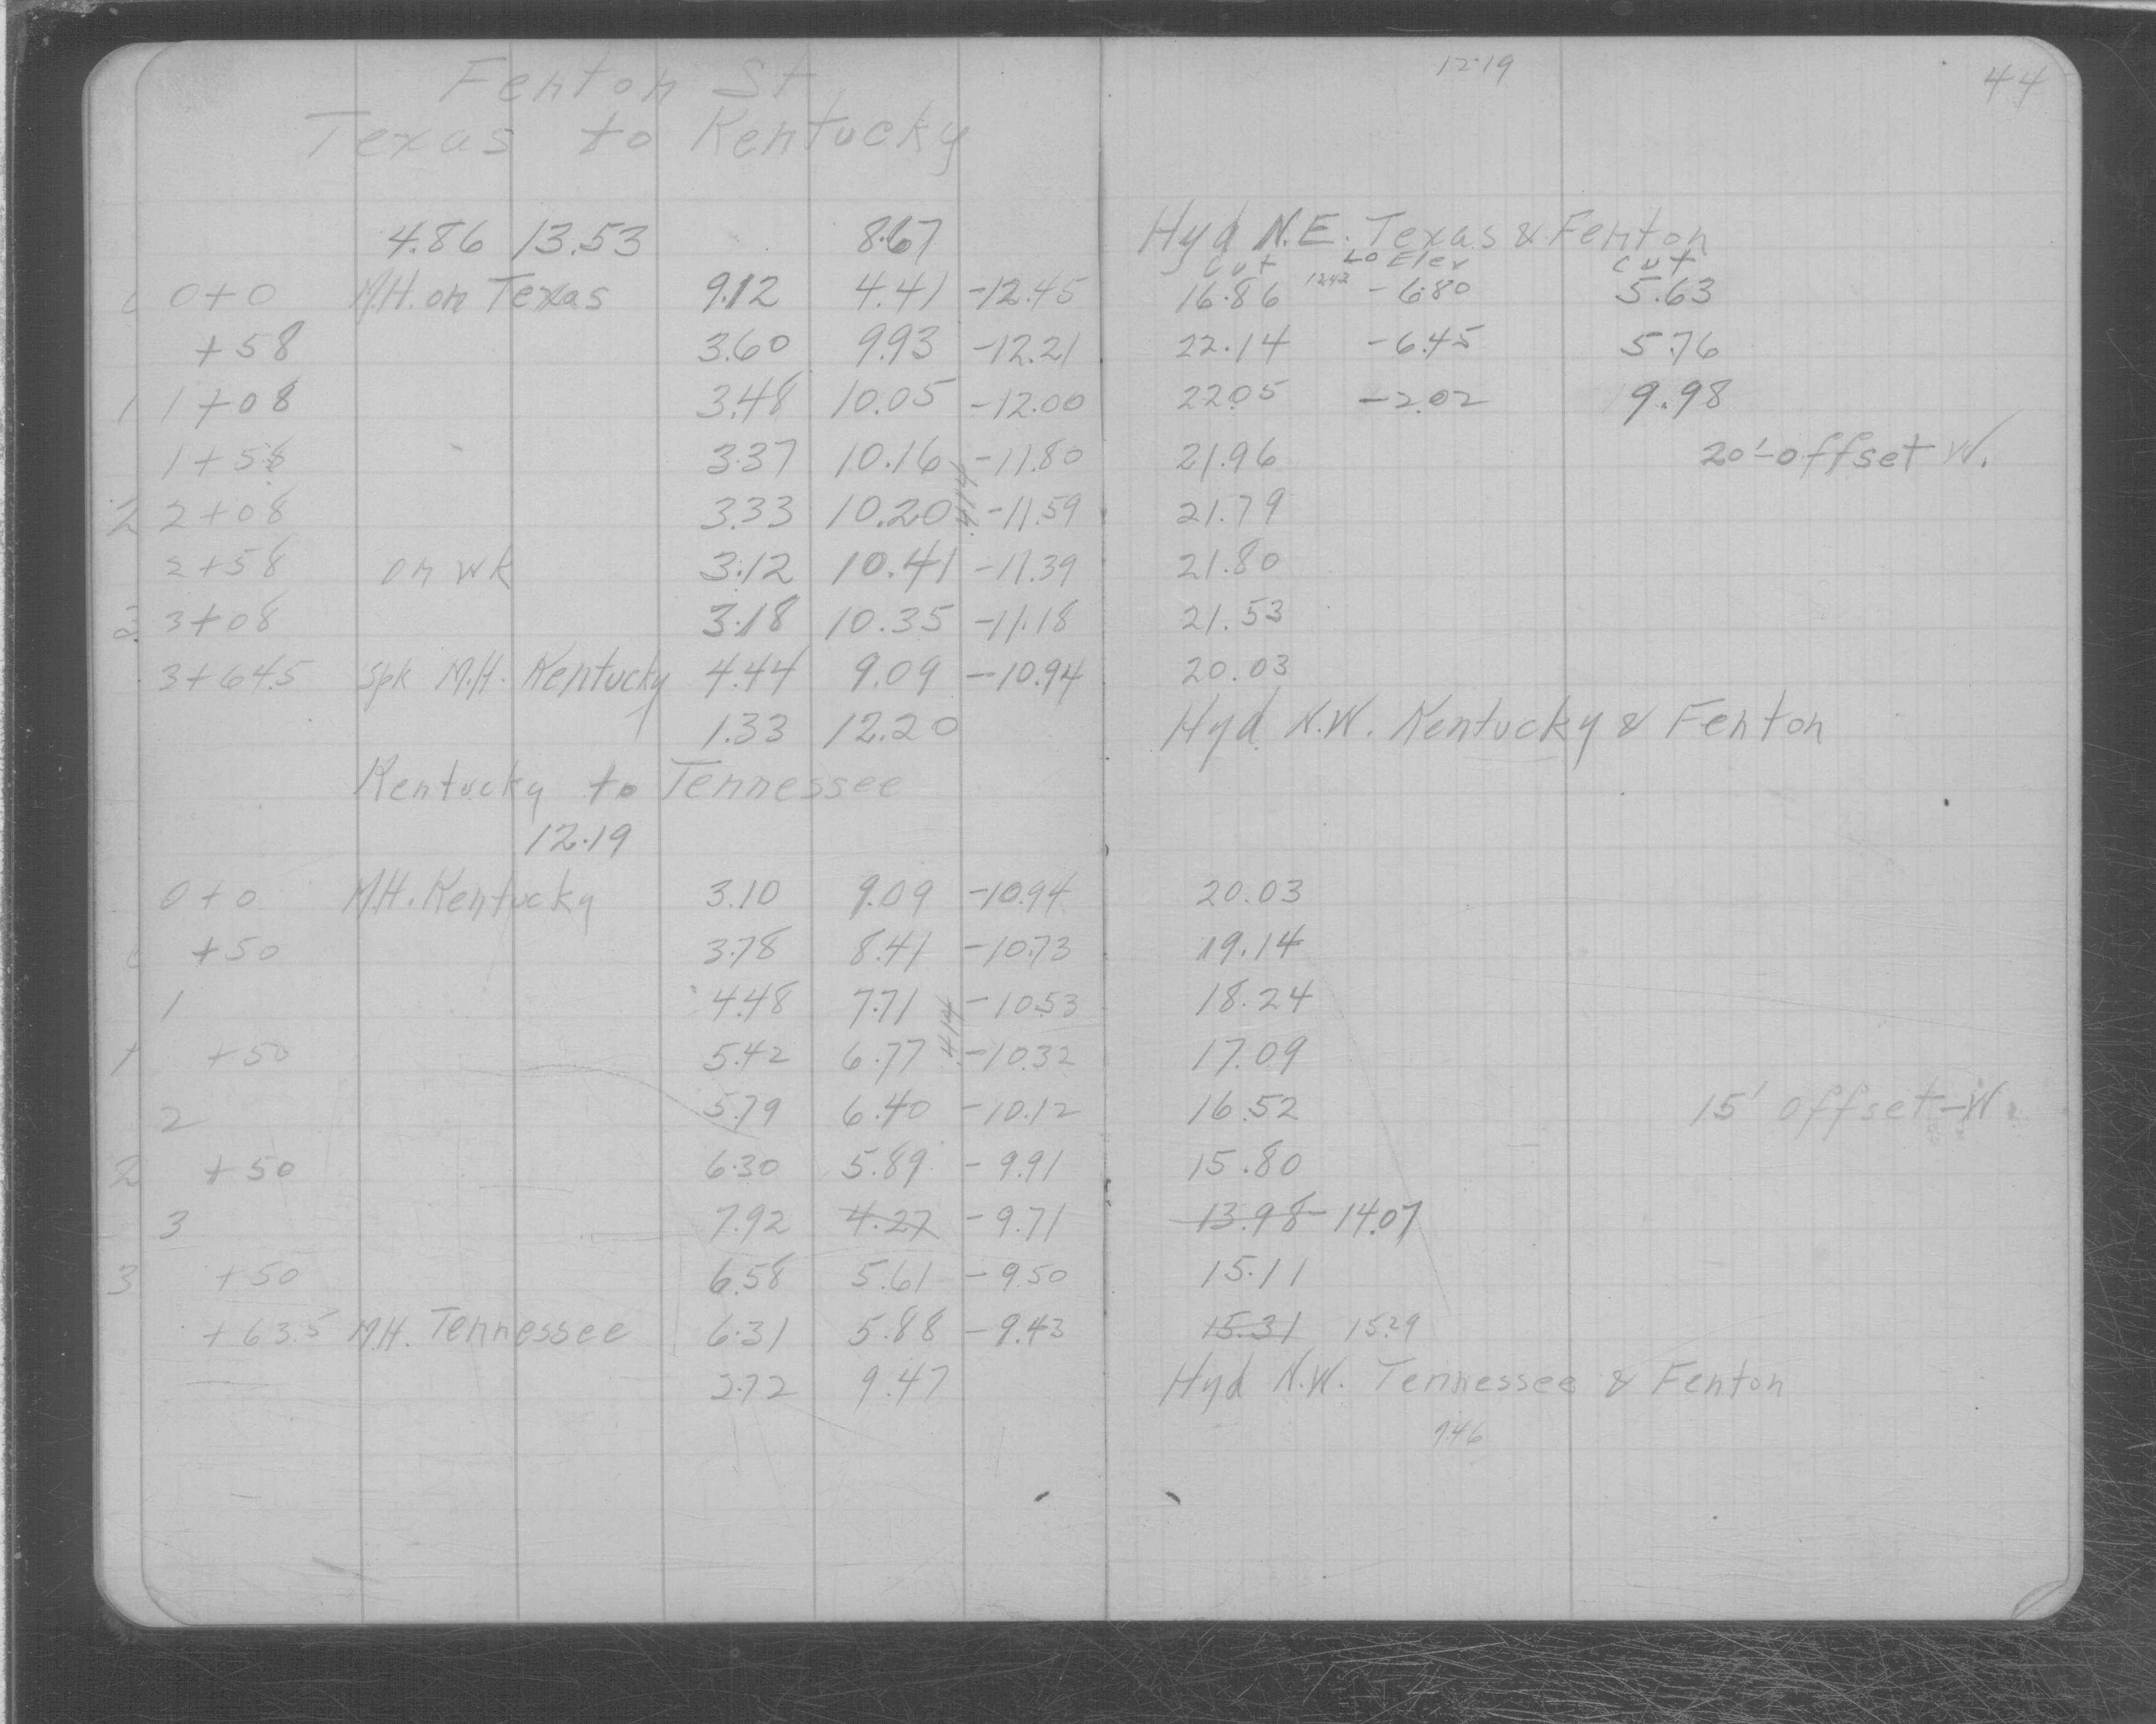 12.19 44
Fenton St
Texas to Kentucky
4.86 13.53 8.67 Hyd N.E. Texas & Fenton
Cut Lo Elev Cut
0 0+0 M.H. on Texas 9.12 4.41 -12.45 16.86 12.42 -6.80 5.63
+58 3.60 9.93 -12.21 22.14 -6.45 5.76
1 1+08 3.48 10.05 -12.00 22.05 -2.02 9.98
1+58 3.37 10.16 -11.80 21.96 20'-offset W.
2 2+08 3.33 10.20 .414 -11.59 21.79
2+58 on wk 3.12 10.41 -11.39 21.80
3 3+08 3.18 10.35 -11.18 21.53
3+64.5 Spk M.H. Kentucky 4.44 9.09 -10.94 20.03
1.33 12.20 Hyd N.W. Kentucky & Fenton
Kentucky to Tennessee
12.19
0+0 M.H. Kentucky 3.10 9.09 -10.94 20.03
0 +50 3.78 8.41 -10.73 19.14
1 4.48 7.71 -10.53 18.24
1 +50 5.42 6.77 .414 -10.32 17.09
2 5.79 6.40 -10.12 16.52 15' offset-W.
2 +50 6.30 5.89 -9.91 15.80
3 7.92 4.27 -9.71 13.98 14.07
3 +50 6.58 5.61 -9.50 15.11
+63.5 M.H. Tennessee 6.31 5.88 -9.43 15.31 15.29
2.72 9.47 Hyd N.W. Tennessee & Fenton
9.46